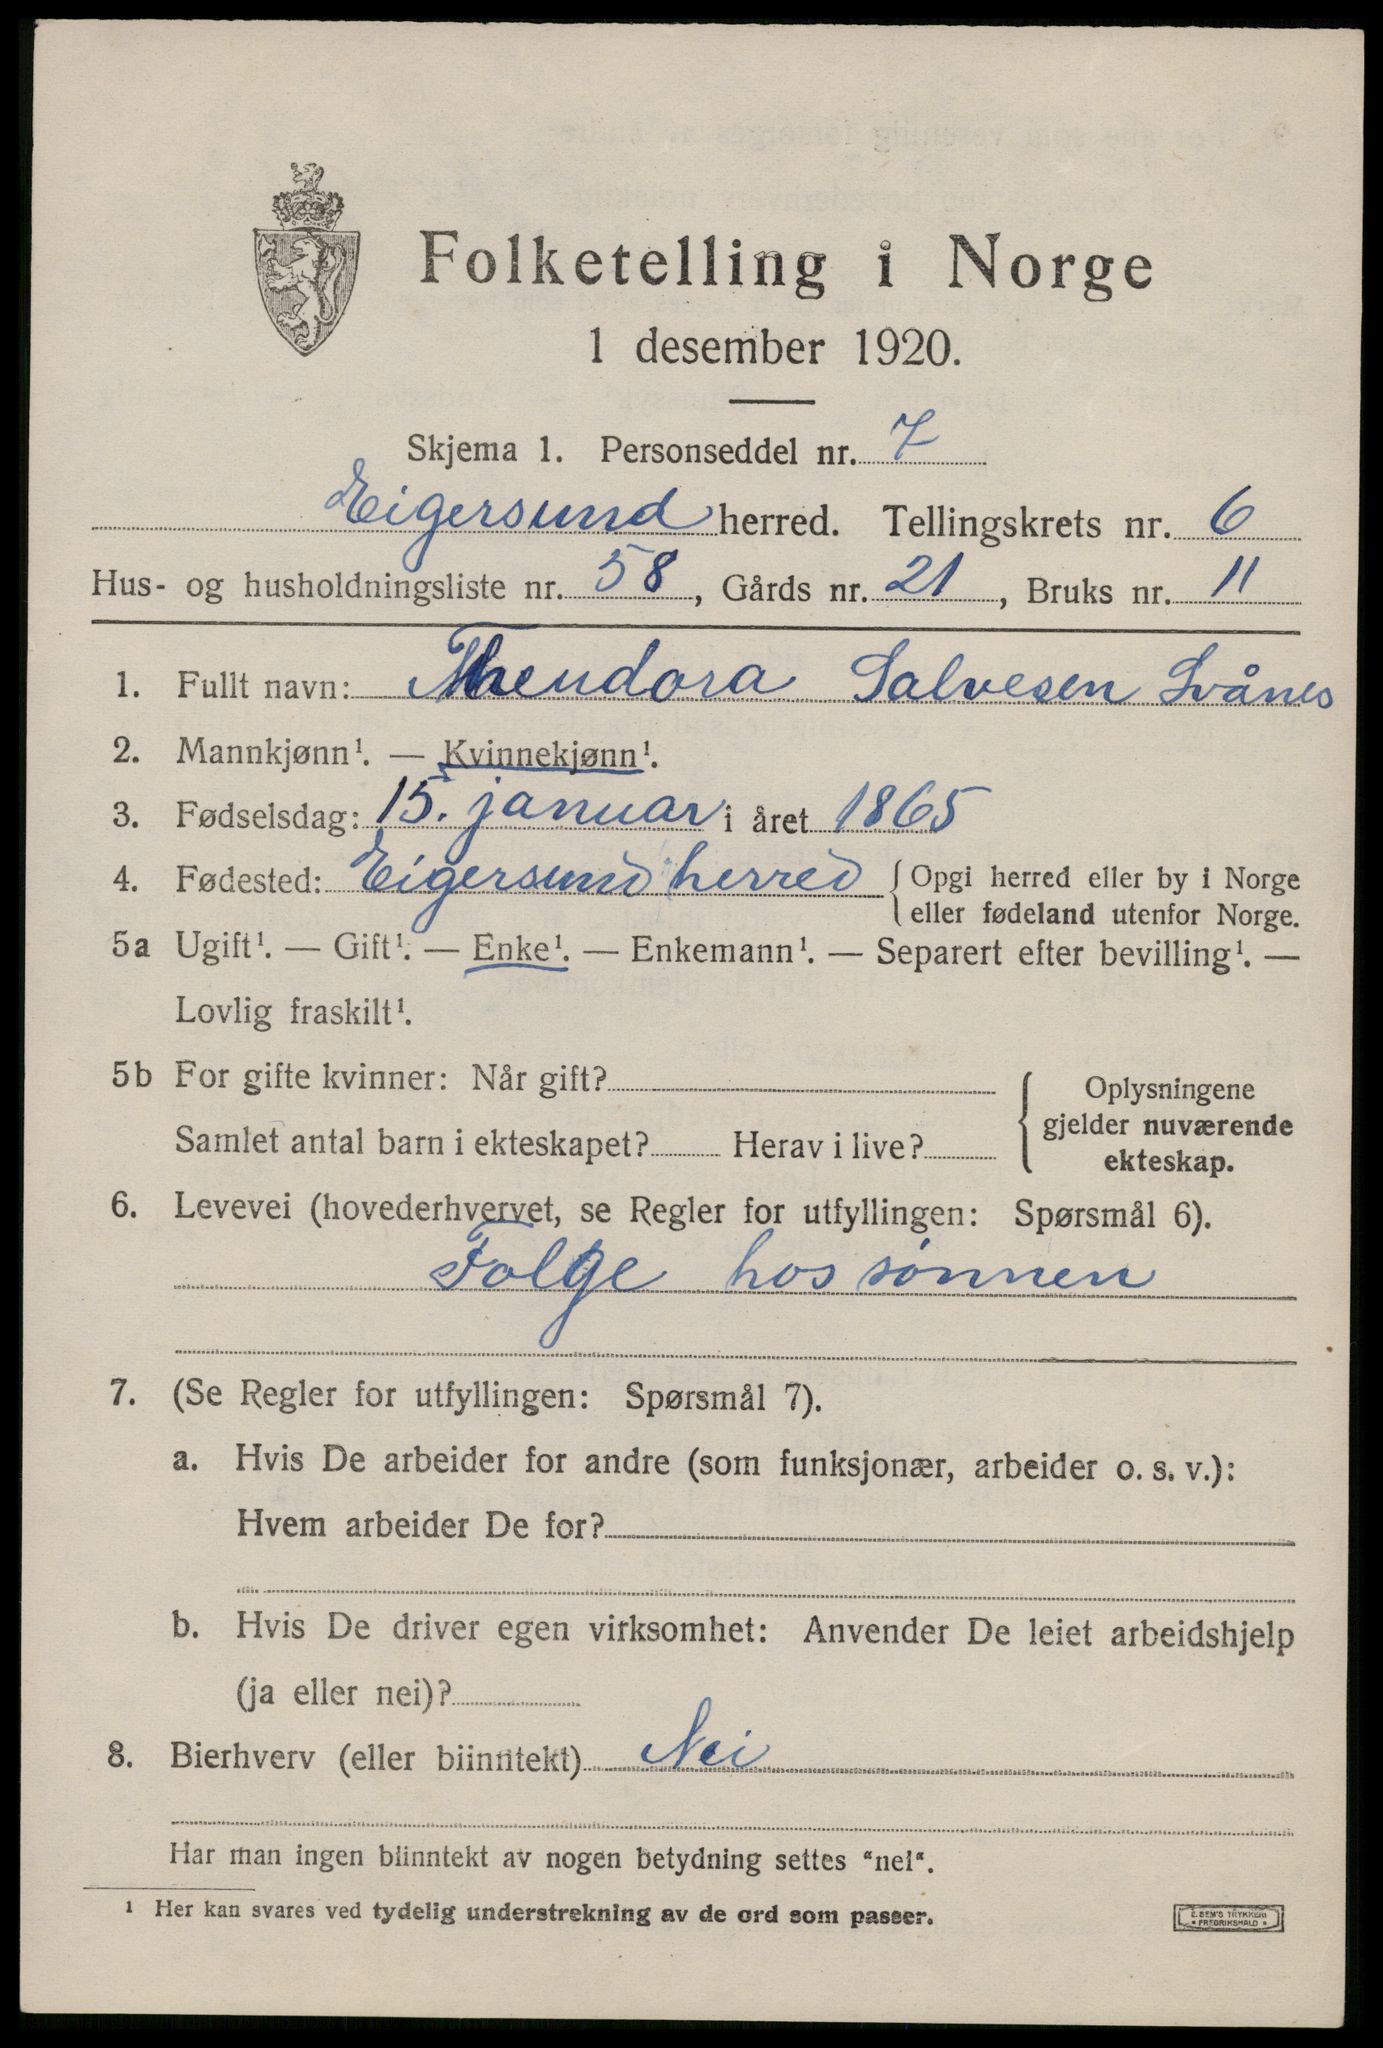 Folketelling i Norge
1 desember 1920.
Skjema 1. Personseddel nr. 7
Eigersund herred. Tellingskrets nr. 6
Hus- og husholdningsliste nr. 58, Gårds nr. 21, Bruks nr. 11
1. Fullt navn: Theudora Salvesen Svånes
2. Mannkjønn¹. — Kvinnekjønn¹.
3. Fødselsdag: 15. januar i året 1865
4. Fødested: Eigersund herred { Opgi herred eller by i Norge
eller fødeland utenfor Norge.
5a Ugift¹. — Gift¹. — Enke¹. — Enkemann¹. — Separert efter bevilling¹. —
Lovlig fraskilt¹.
5b For gifte kvinner: Når gift?
Samlet antal barn i ekteskapet? Herav i live?
{ Oplysningene
gjelder nuværende
ekteskap.
6. Levevei (hovederhvervet, se Regler for utfyllingen: Spørsmål 6).
Folge hos sønnen
7. (Se Regler for utfyllingen: Spørsmål 7).
a. Hvis De arbeider for andre (som funksjonær, arbeider o. s. v.):
Hvem arbeider De for?
b. Hvis De driver egen virksomhet: Anvender De leiet arbeidshjelp
(ja eller nei)?
8. Bierhverv (eller biinntekt) Nei
Har man ingen biinntekt av nogen betydning settes "nei".
¹ Her kan svares ved tydelig understrekning av de ord som passer.
E. SEM'S TRYKKERI
• FREDRIKSHALD •